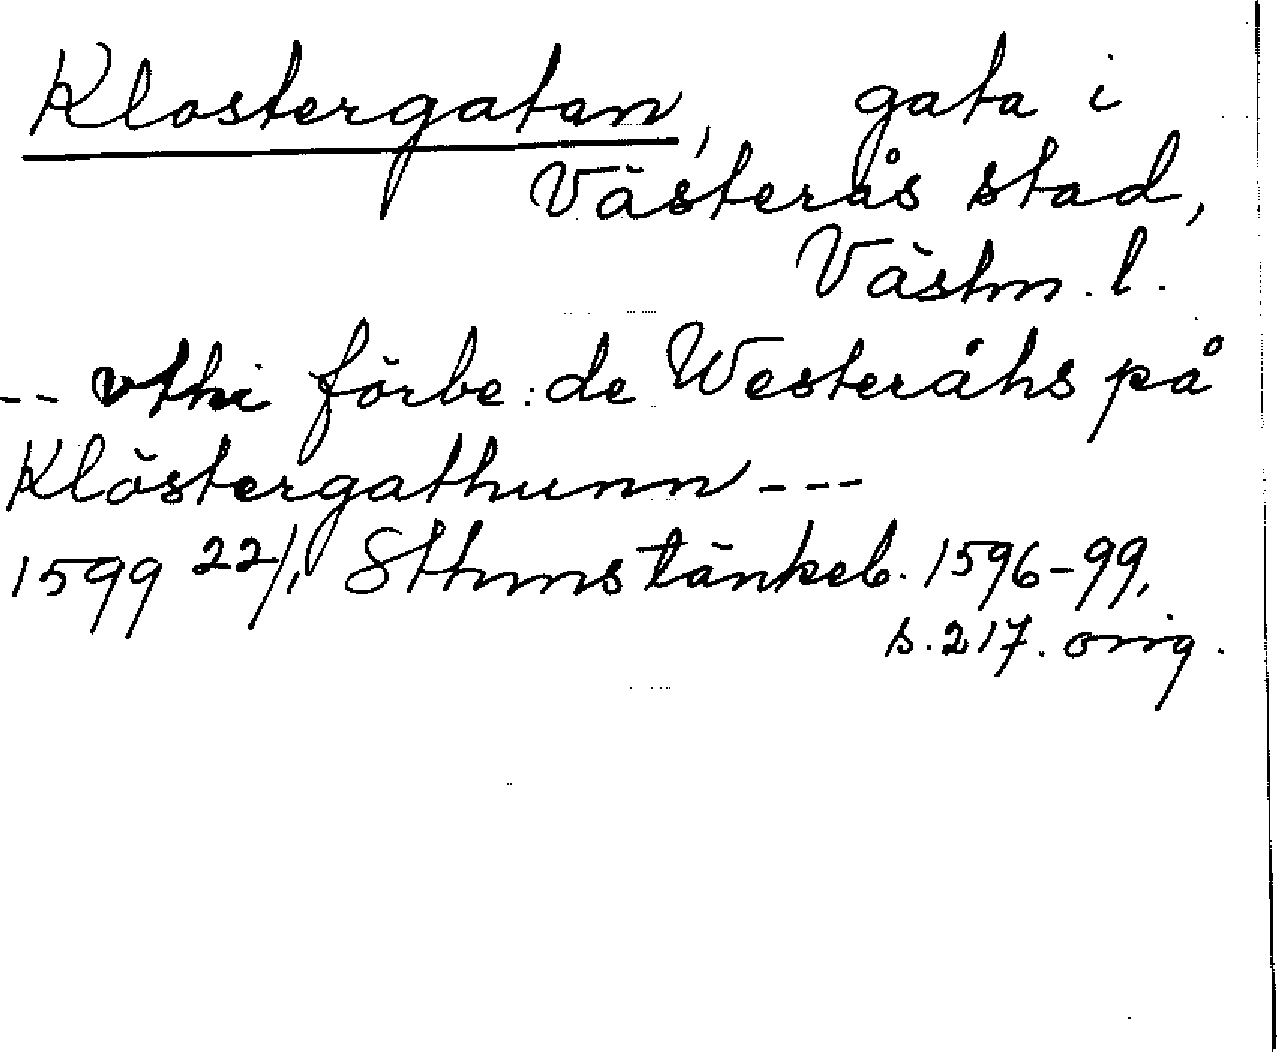 Klostergatan, gata i
Västerås stad,
Västm. l.
-- vthi förbe:de Westeråhs på
Klöstergathunn ---
1599 22/1 Sthms tänkeb. 1596-99,
s. 217. orig.